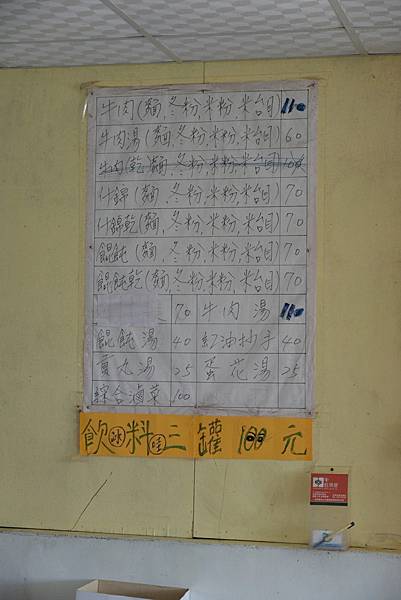 牛肉(麵,冬粉,米粉,米台目) 110
牛肉湯(麵,冬粉,米粉,米台目) 60
牛肉乾(麵,冬粉,米粉,米台目) 100
什錦(麵,冬粉,米粉,米台目) 70
什錦乾(麵,冬粉,米粉,米台目) 70
餛飩(麵,冬粉,米粉,米台目) 70
餛飩乾(麵,冬粉,米粉,米台目) 70
70 牛肉湯 110
餛飩湯 40 紅油抄手 40
貢丸湯 25 蛋花湯 25
綜合滷菜 100
飲冰料三罐 100元